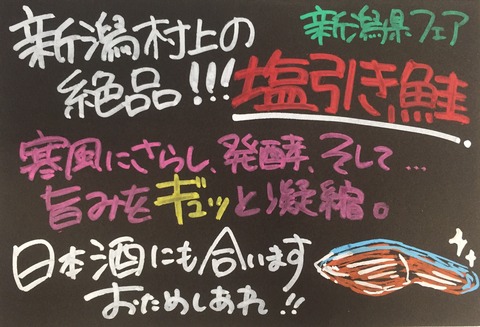 新潟県フェア
新潟村上の
絶品!!!
塩引き鮭
寒風にさらし、発酵、そして…
旨みをギュッと凝縮。
日本酒にも合います
おためしあれ!!